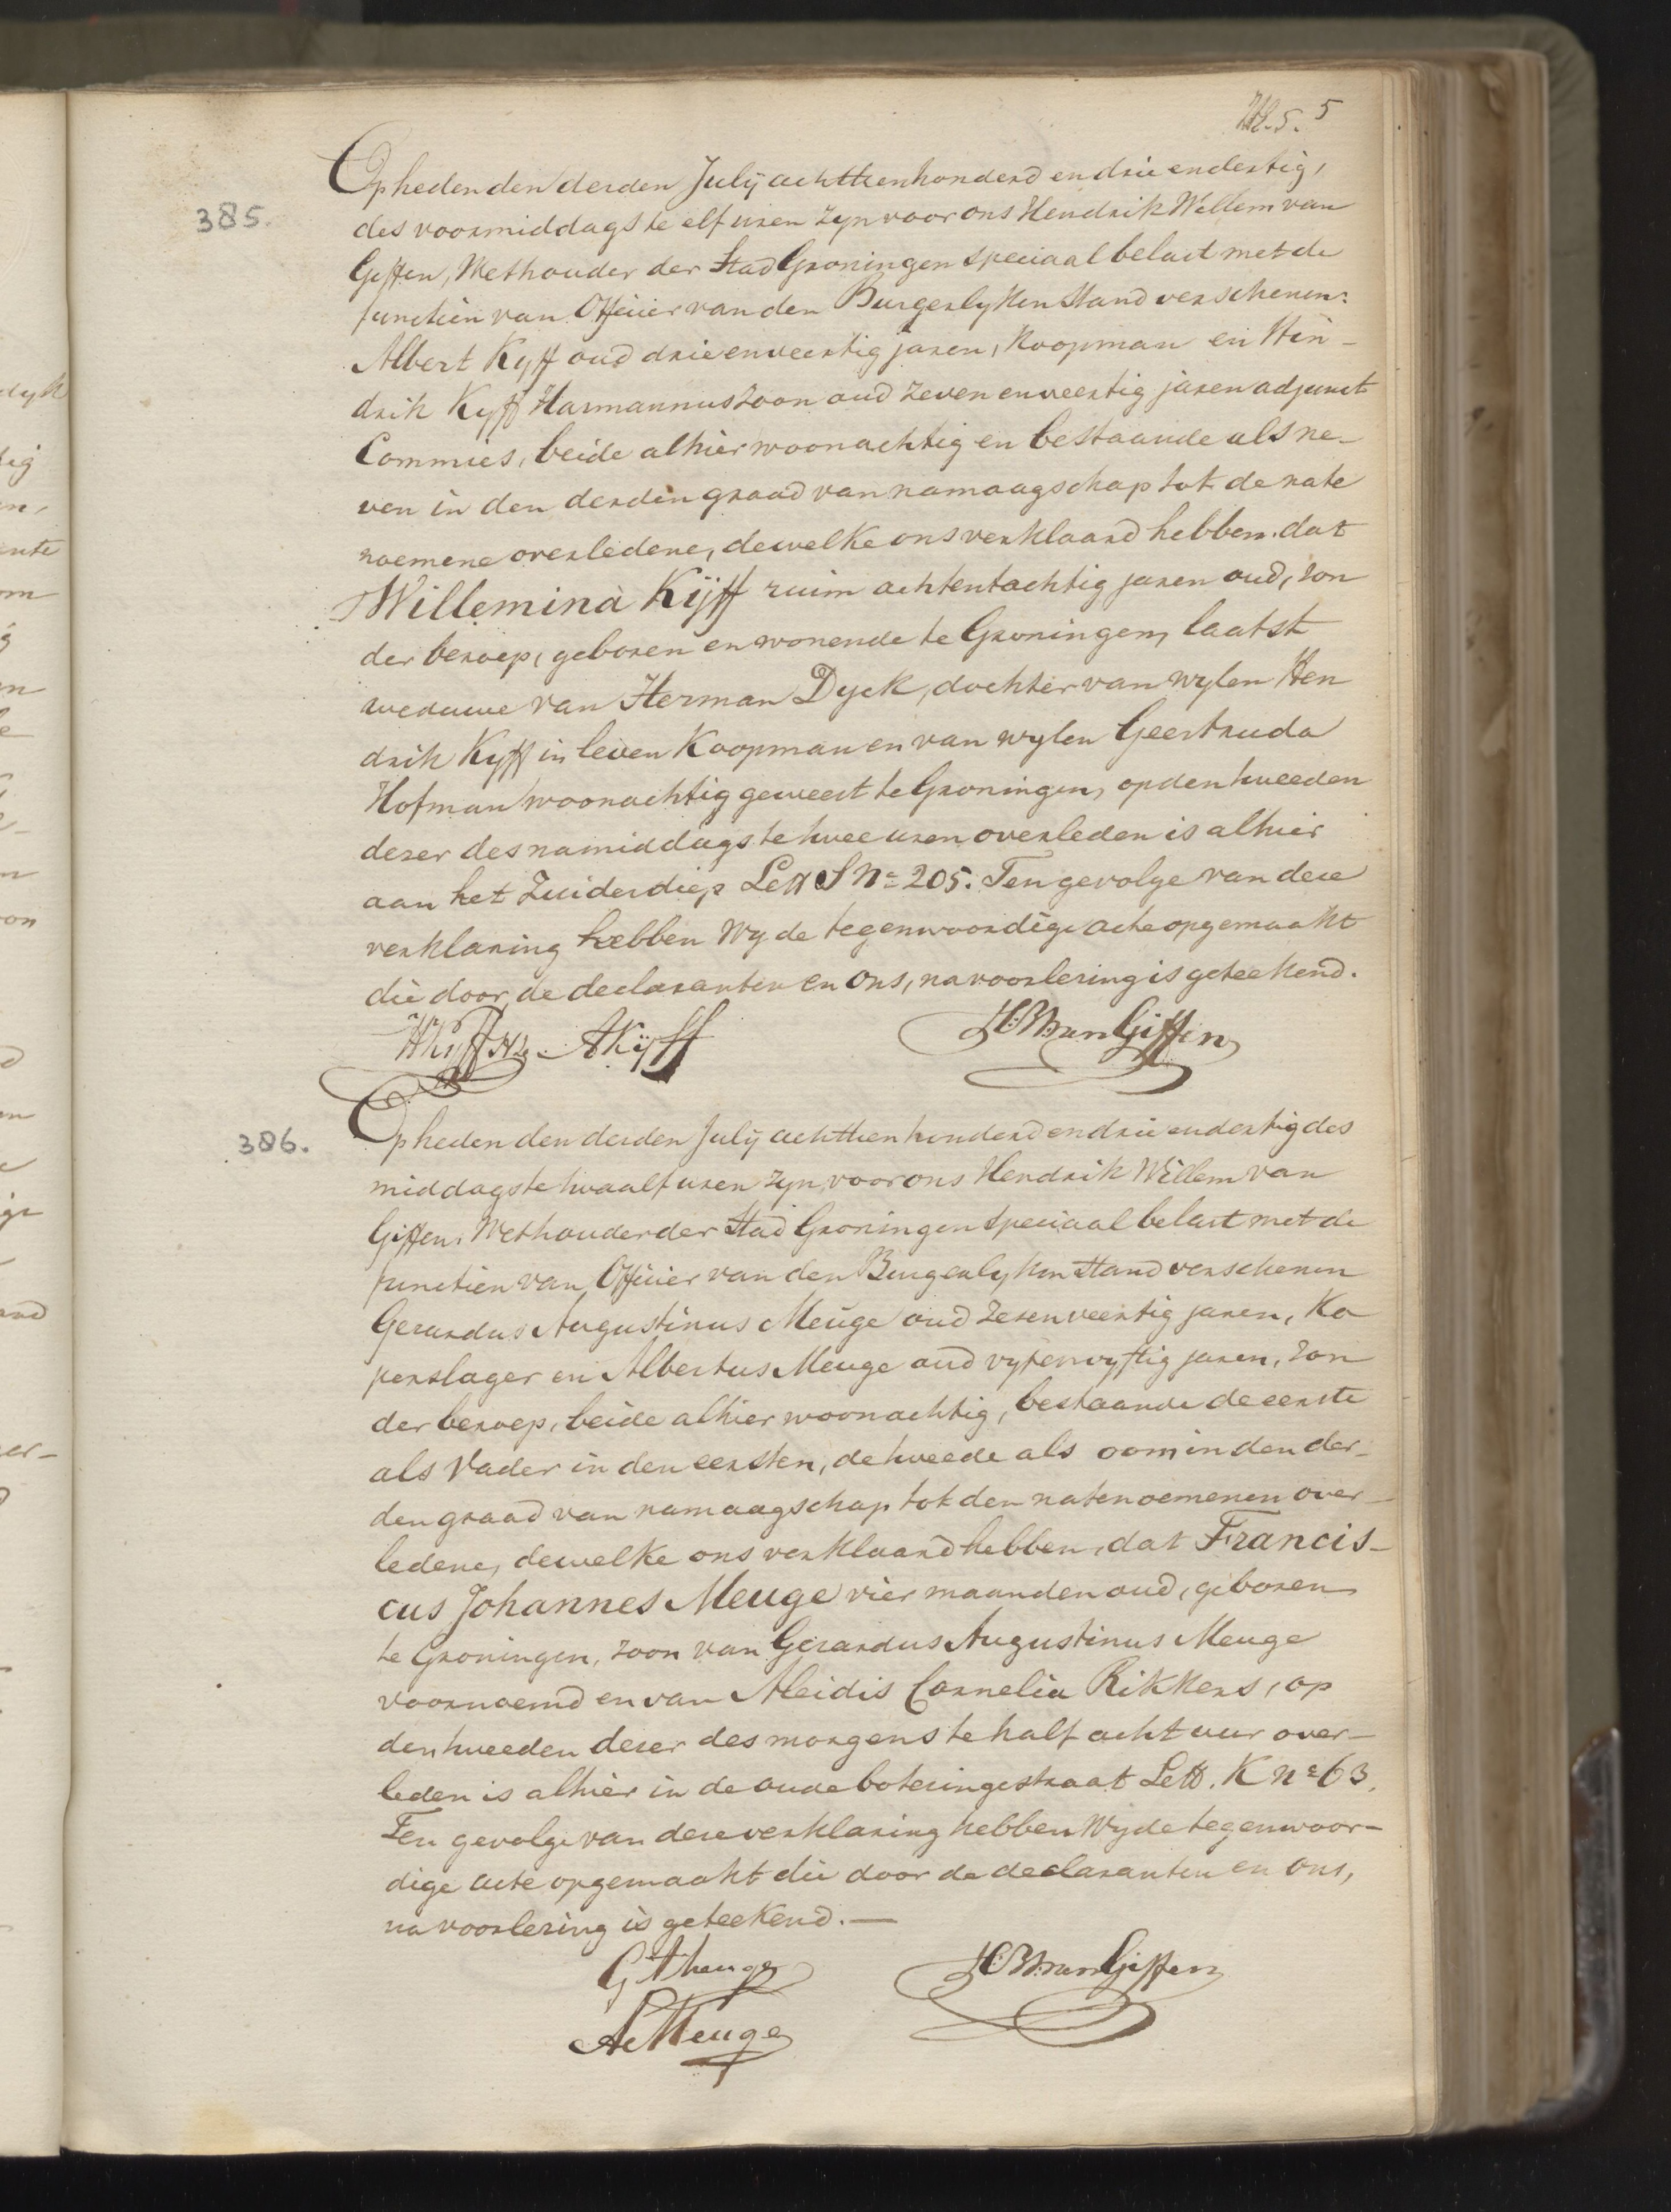 5
385.
Op heden den derden July achttienhonderd en drie en dertig,
des voormiddags te elf uren zyn voor ons Hendrik Willem van
Giffen, Wethouder der Stad Groningen speciaal belast met de
functien van Officier van den Burgerlyken Stand verschenen:
Albert Kyff oud drie en veertig jaren, Koopman en Hin-
drik Kyff Harmannuszoon oud zeven en veertig jaren adjunct
Commies, beide alhier woonachtig en bestaande als ne-
ven in den derden graad van namaagschap tot de nate
noemene overledene, dewelke ons verklaard hebben dat
Willemina Kijff ruim achtentachtig jaren oud, zon
der beroep, geboren en wonende te Groningen, laatst
weduwe van Herman Dyck, dochter van wylen Hen
drik Kyff in leven Koopman en van wylen Geertruda
Hofman woonachtig geweest te Groningen, op den tweeden
dezer des namiddags te twee uren overleden is alhier
aan het Zuiderdiep Lett S No 205. Ten gevolge van deze
verklaring hebben Wy de tegenwoordige acte opgemaakt
die door de declaranten en ons, na voorlezing is geteekend.
HKyff Hz. AKijff HWvanGiffen
386.
Op heden den derden July achttien honderd en drie en dertig des
middags te twaalf uren zyn voor ons Hendrik Willem van
Giffen, Wethouder der Stad Groningen speciaal belast met de
functien van Officier van den Burgerlyken Stand verschenen
Gerardus Augustinus Meuge oud zesenveertig jaren, Ko
perslager en Albertus Meuge oud vyfenvyftig jaren, zon
der beroep, beide alhier woonachtig, bestaande de eerste
als Vader in den eersten, de tweede als oom in den der-
den graad van namaagschap tot den natenoemenen over-
ledene, dewelke ons verklaard hebben, dat Francis-
cus Johannes Meuge vier maanden oud, geboren
te Groningen, zoon van Gerardus Augustinus Meuge
voornoemd en van Aleidis Cornelia Rikkers, op
den tweeden dezer des morgens te half acht uur over-
leden is alhier in de oude boteringestraat Lett. K No 63.
Ten gevolge van deze verklaring hebben Wy de tegenwoor-
dige acte opgemaakt die door de declaranten en ons,
na voorlezing is geteekend.—
G A Meuge HWvanGiffen
A Meuge